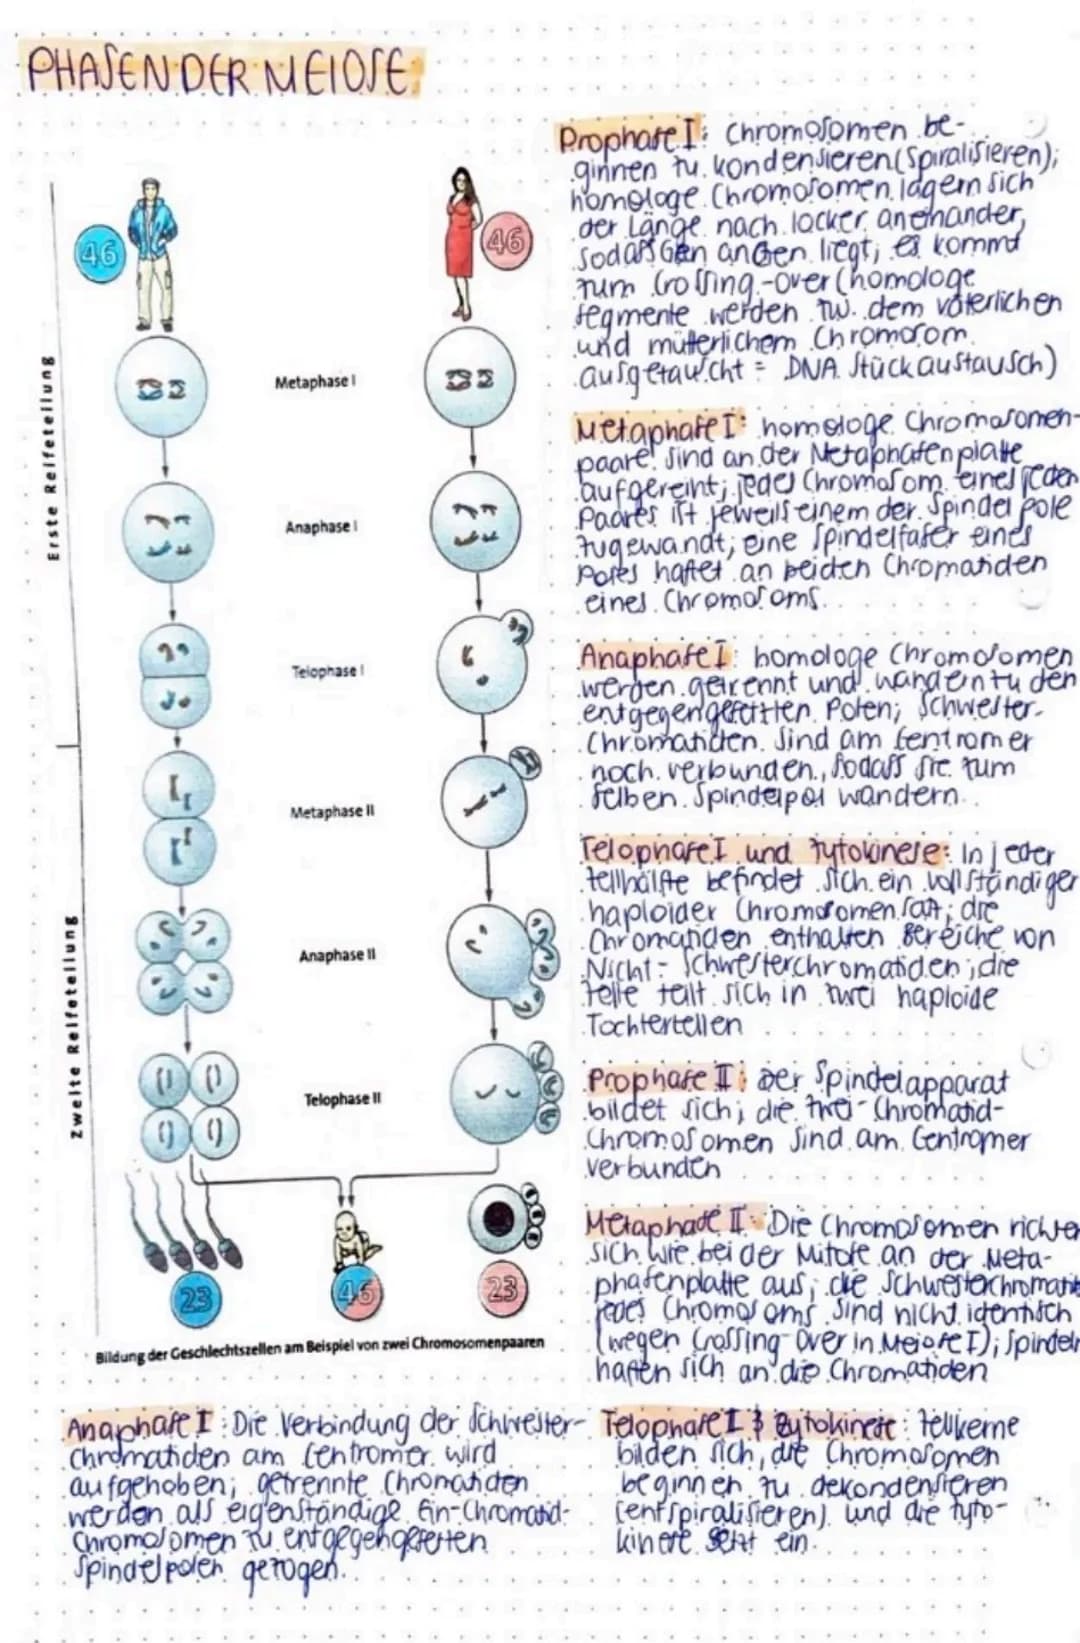 PHASEN DER MEIOSE
Prophase I: Chromosomen be-
ginnen zu kondensieren (spiralisieren);
homologe Chromosomen lagern sich
der Länge nach locker aneinander,
sodass Gen an Gen liegt; es kommt
zum Crossing-over (homologe
Segmente werden zw. dem väterlichen
und mütterlichem Chromosom
ausgetauscht = DNA Stückaustausch)
Metaphase I: homologe Chromosomen-
paare sind an der Metaphasenplatte
aufgereiht; jedes Chromosom eines jeden
Paares ist jeweils einem der Spindelpole
zugewandt; eine Spindelfaser eines
Poles haftet an beiden Chromatiden
eines Chromosoms.
Anaphase I: homologe Chromosomen
werden getrennt und wandern zu den
entgegengesetzten Polen; Schwester-
Chromatiden sind am Centromer
noch verbunden, sodass sie zum
selben Spindelpol wandern.
Telophase I und Zytokinese: In jeder
Zellhälfte befindet sich ein vollständiger
haploider Chromosomensatz; die
Chromatiden enthalten Bereiche von
Nicht-Schwesterchromatiden; die
Zelle teilt sich in zwei haploide
Tochterzellen
Prophase II: Der Spindelapparat
bildet sich; die Zwei-Chromatid-
Chromosomen sind am Centromer
verbunden
Metaphase II: Die Chromosomen richten
sich wie bei der Mitose an der Meta-
phasenplatte aus; die Schwesterchromati
jedes Chromosoms sind nicht identisch
(wegen Crossing-Over in Meiose I); Spindeln
haften sich an die Chromatiden
Erste Reifeteilung
Zweite Reifeteilung
46
46
Metaphase I
Anaphase I
Telophase I
Metaphase II
Anaphase II
Telophase II
23
46
23
Bildung der Geschlechtszellen am Beispiel von zwei Chromosomenpaaren
Anaphase I: Die Verbindung der Schwester-
chromatiden am Centromer wird
aufgehoben; getrennte Chromatiden
werden als eigenständige Ein-Chromatid-
Chromosomen zu entgegengesetzten
Spindelpolen gezogen.
Telophase I & Zytokinese: Zellkerne
bilden sich, die Chromosomen
beginnen zu dekondensieren
(entspiralisieren) und die Zyto-
kinese setzt ein.